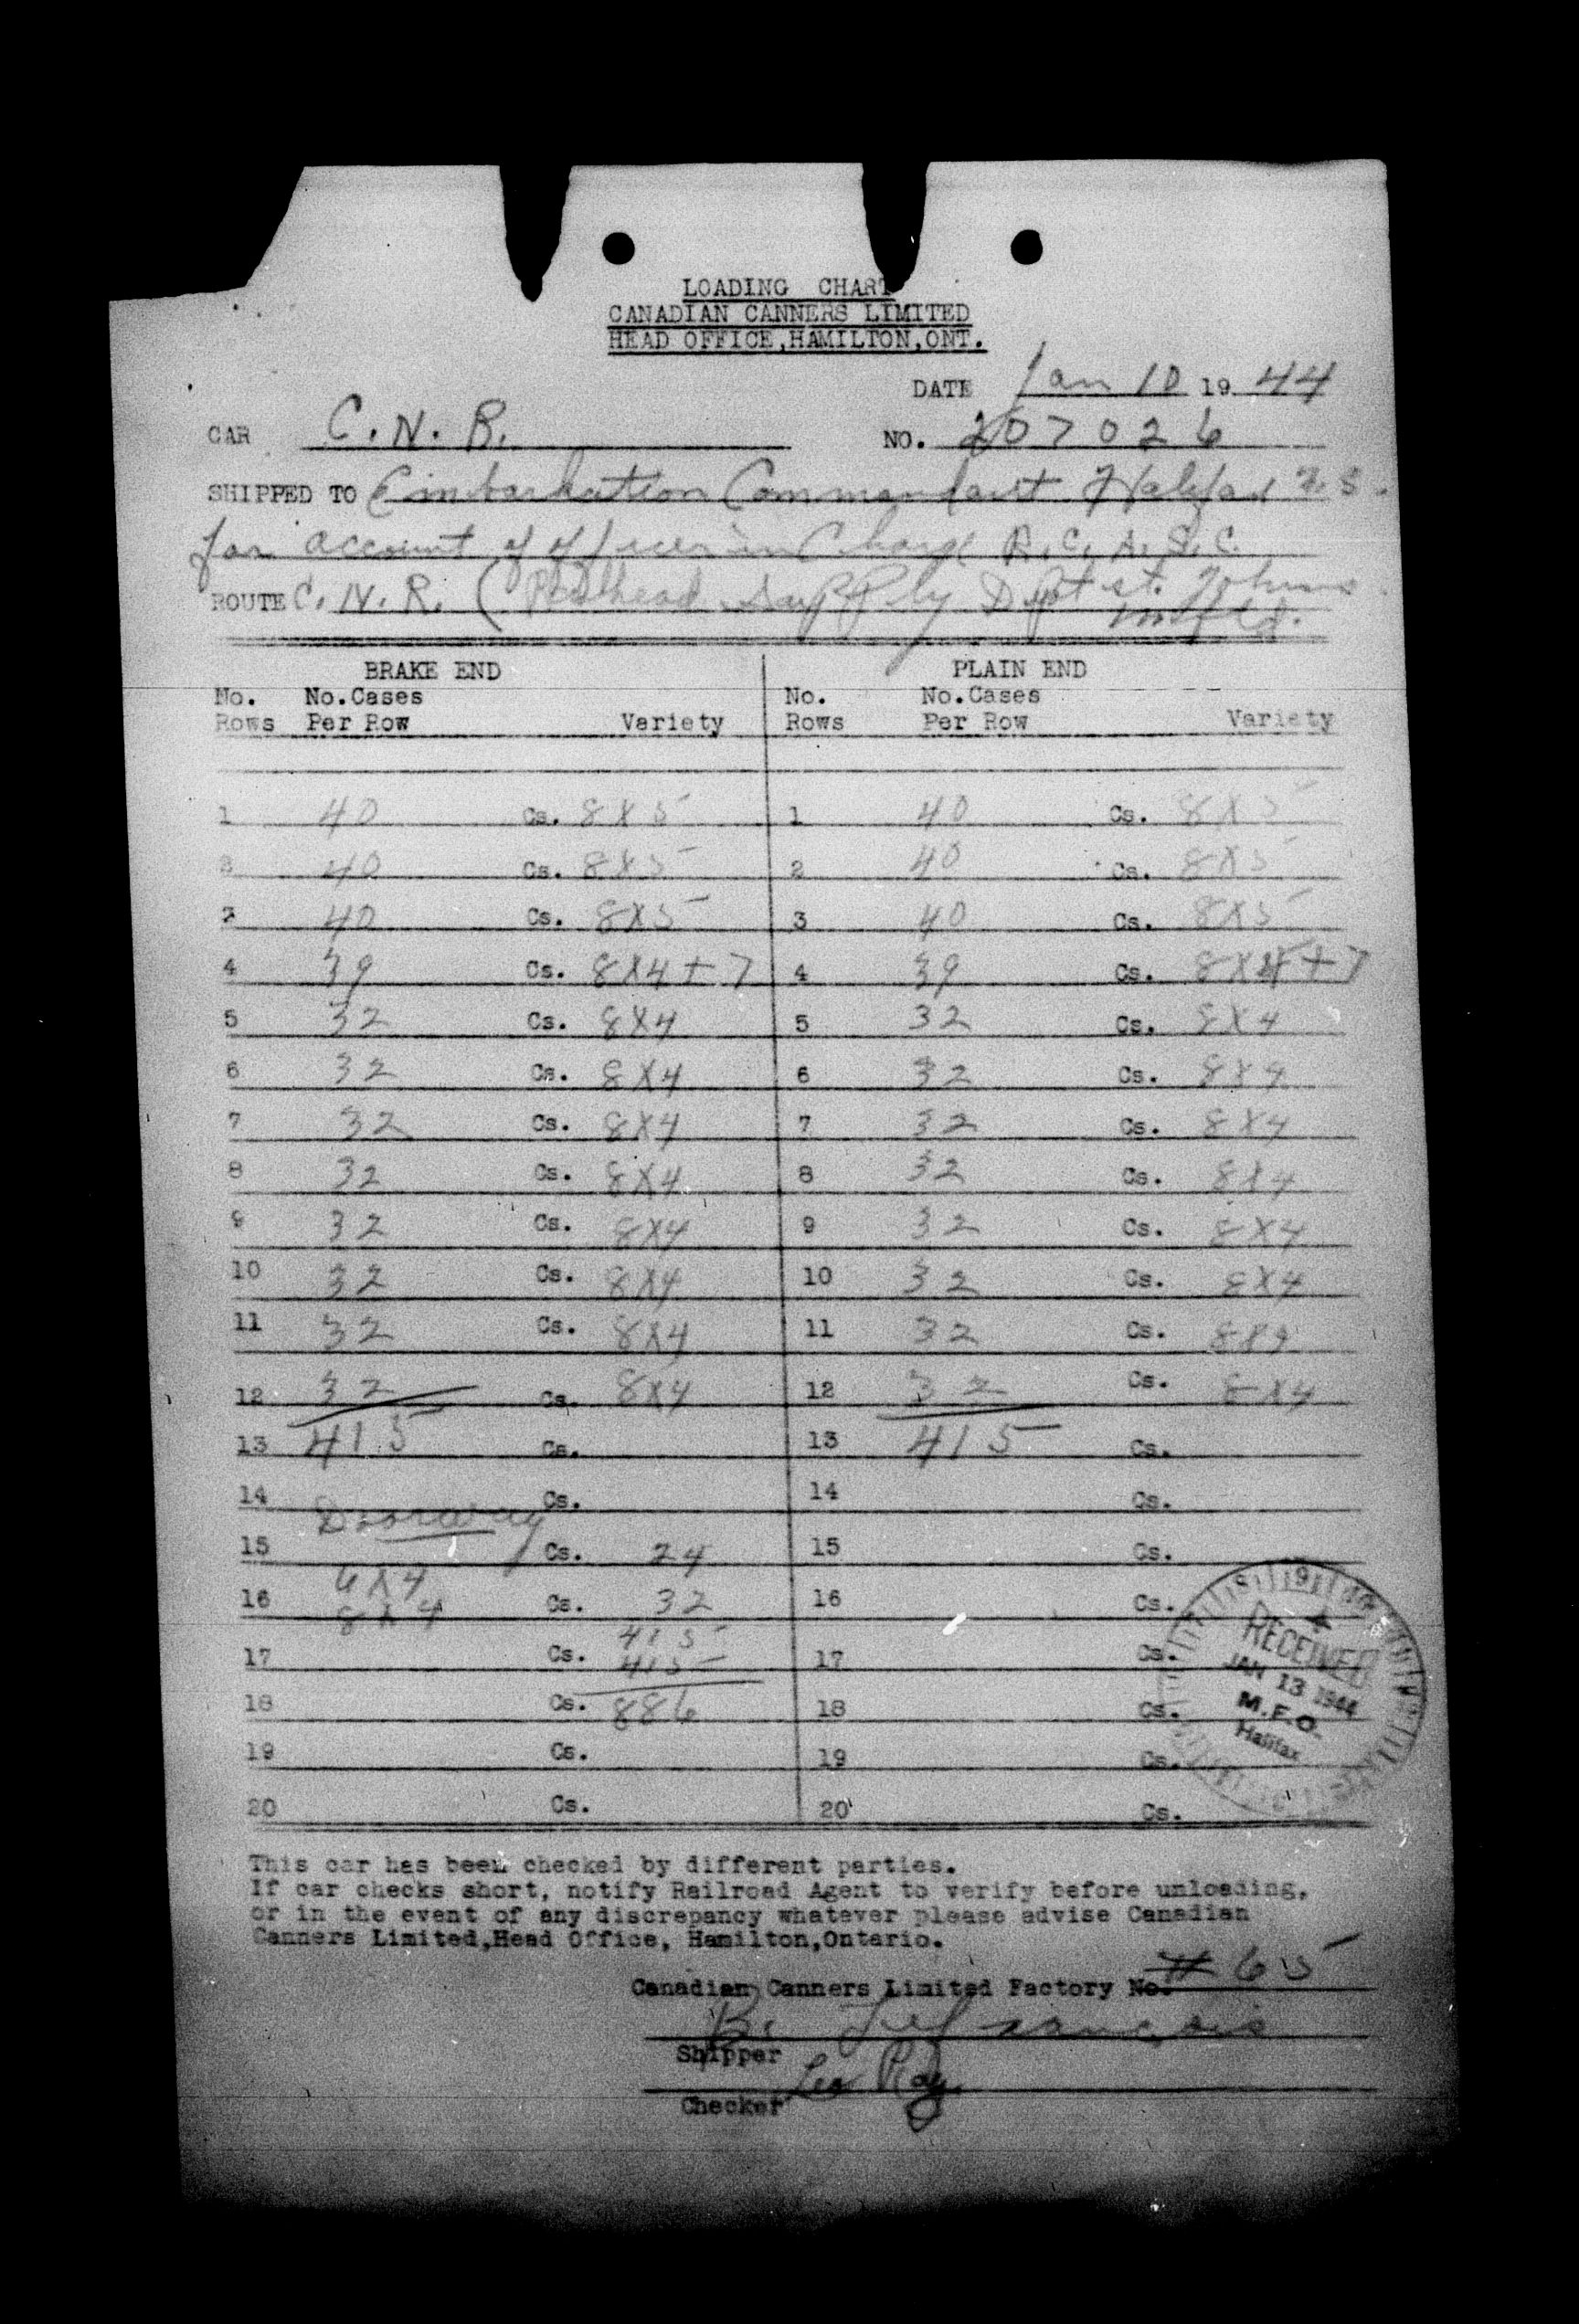 LOADING CHART
CANADIAN CANNERS LIMITED
HEAD OFFICE,HAMILTON,ONT.
DATE Jan 10 19 44
CAR C. N. R. NO. 207026
SHIPPED TO Embarkation Commandant Halifax N.S.
for account of officer in Charge R. C. A. S. C.
ROUTE C. N. R. ( Railhead Supply Dept St. Johns
Nfld.
BRAKE END PLAIN END
No. No.Cases No. No.Cases
Rows Per Row Variety Rows Per Row Variety
1 40 Cs. 8X5 1 40 Cs. 8X5
3 40 Cs. 8X5 2 40 Cs. 8X5
2 40 Cs. 8X5 3 40 Cs. 8X5
4 39 Cs. 8X4+7 4 39 Cs. 8X4+7
5 32 Cs. 8X4 5 32 Cs. 8X4
6 32 Cs. 8X4 6 32 Cs. 8X4
7 32 Cs. 8X4 7 32 Cs. 8X4
8 32 Cs. 8X4 8 32 Cs. 8X4
9 32 Cs. 8X4 9 32 Cs. 8X4
10 32 Cs. 8X4 10 32 Cs. 8X4
11 32 Cs. 8X4 11 32 Cs. 8X4
12 32 Cs. 8X4 12 32 Cs. 8X4
13 415 Cs. 13 415 Cs.
14 Cs. 14 Cs.
Doorway
15 Cs. 24 15 Cs.
6X4
16 8X4 Cs. 32 16 Cs.
415
17 Cs. 415 17 Cs.
18 Cs. 886 18 Cs.
19 Cs. 19 Cs.
20 Cs. 20 Cs.
RECEIVED
JAN 13 1944
M.F.O.
Halifax
This car has been checked by different parties.
If car checks short, notify Railroad Agent to verify before unloading,
or in the event of any discrepancy whatever please advise Canadian
Canners Limited,Head Office, Hamilton,Ontario.
Canadian Canners Limited Factory No. # 65
B. Lefrancois
Shipper
Leo Roy
Checker